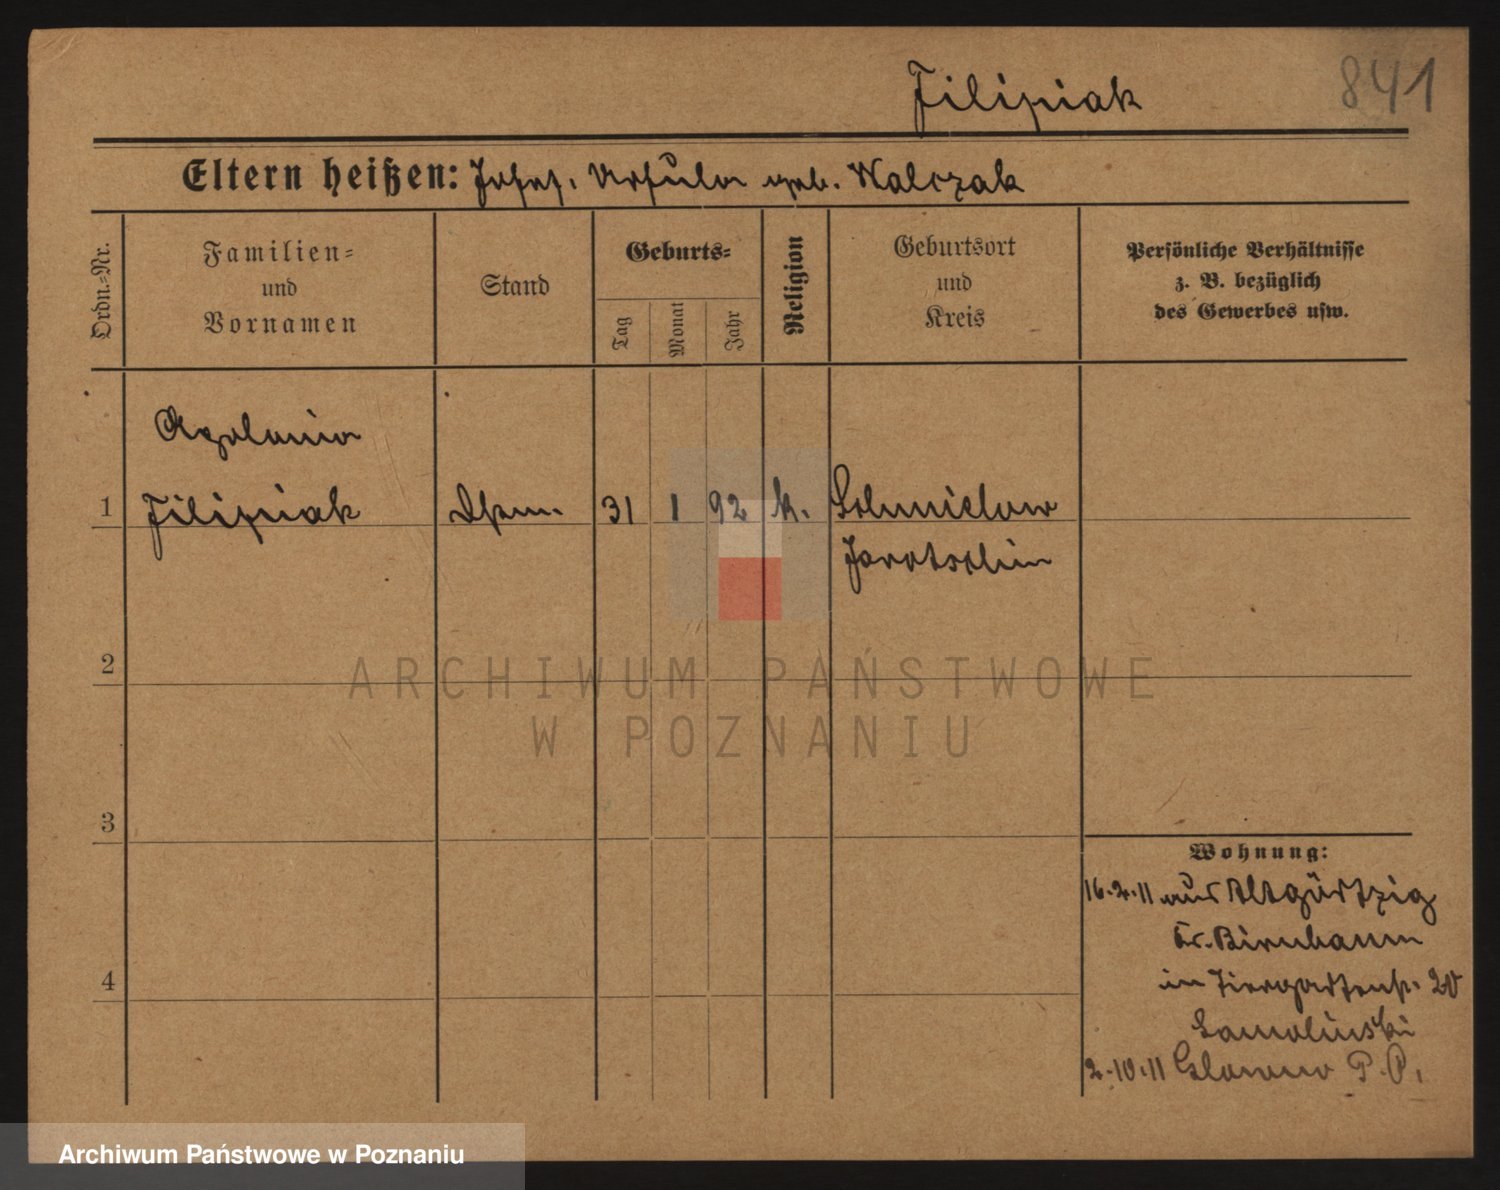 Filipiak
841
Eltern heißen: Josef, Ursula geb. Walczak
Ordn.-Nr.
Familien-
und
Vornamen
Stand
Geburts-
Tag
Monat
Jahr
Religion
Geburtsort
und
Kreis
Persönliche Verhältnisse
z. B. bezüglich
des Gewerbes usw.
Apolonia
1 Filipiak 31 1 92 k.
Jarotschin
2
3
4
Wohnung:
16.2.11 aus Altgörtzig
Kr. Birnbaum
in Tiergartenstr. 20
2.10.11 Glowno P. O.
ARCHIWUM PAŃSTWOWE
W POZNANIU
Archiwum Państwowe w Poznaniu